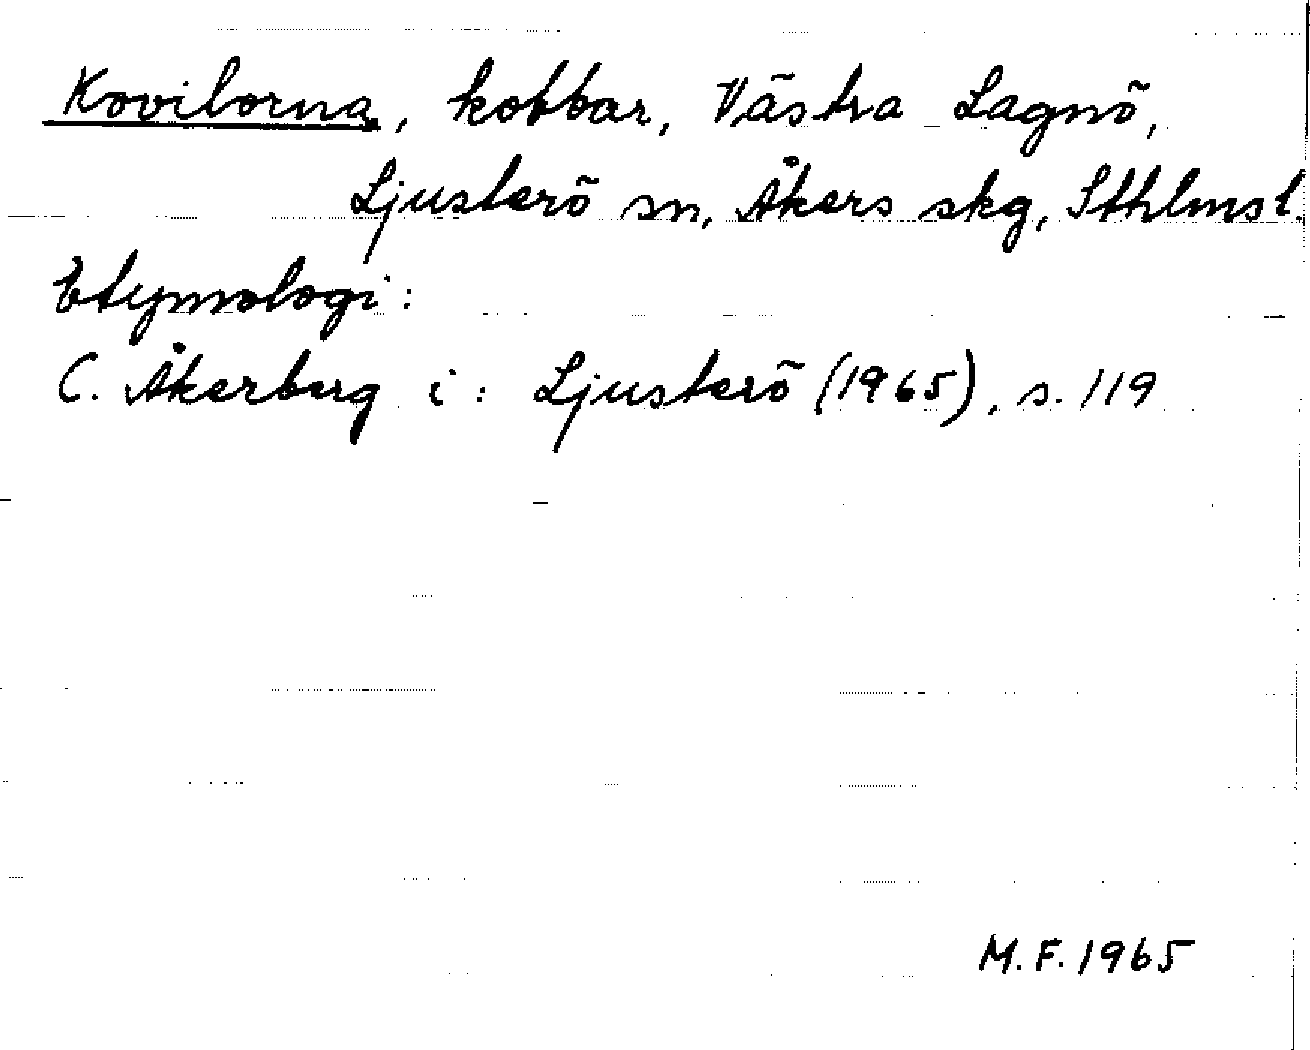 Kovilorna, kobbar, Västra Lagnö,
Ljusterö sn, Åkers skg, Sthlms l.
Etymologi:
C. Åkerberg i: Ljusterö (1965), s. 119
M.F. 1965